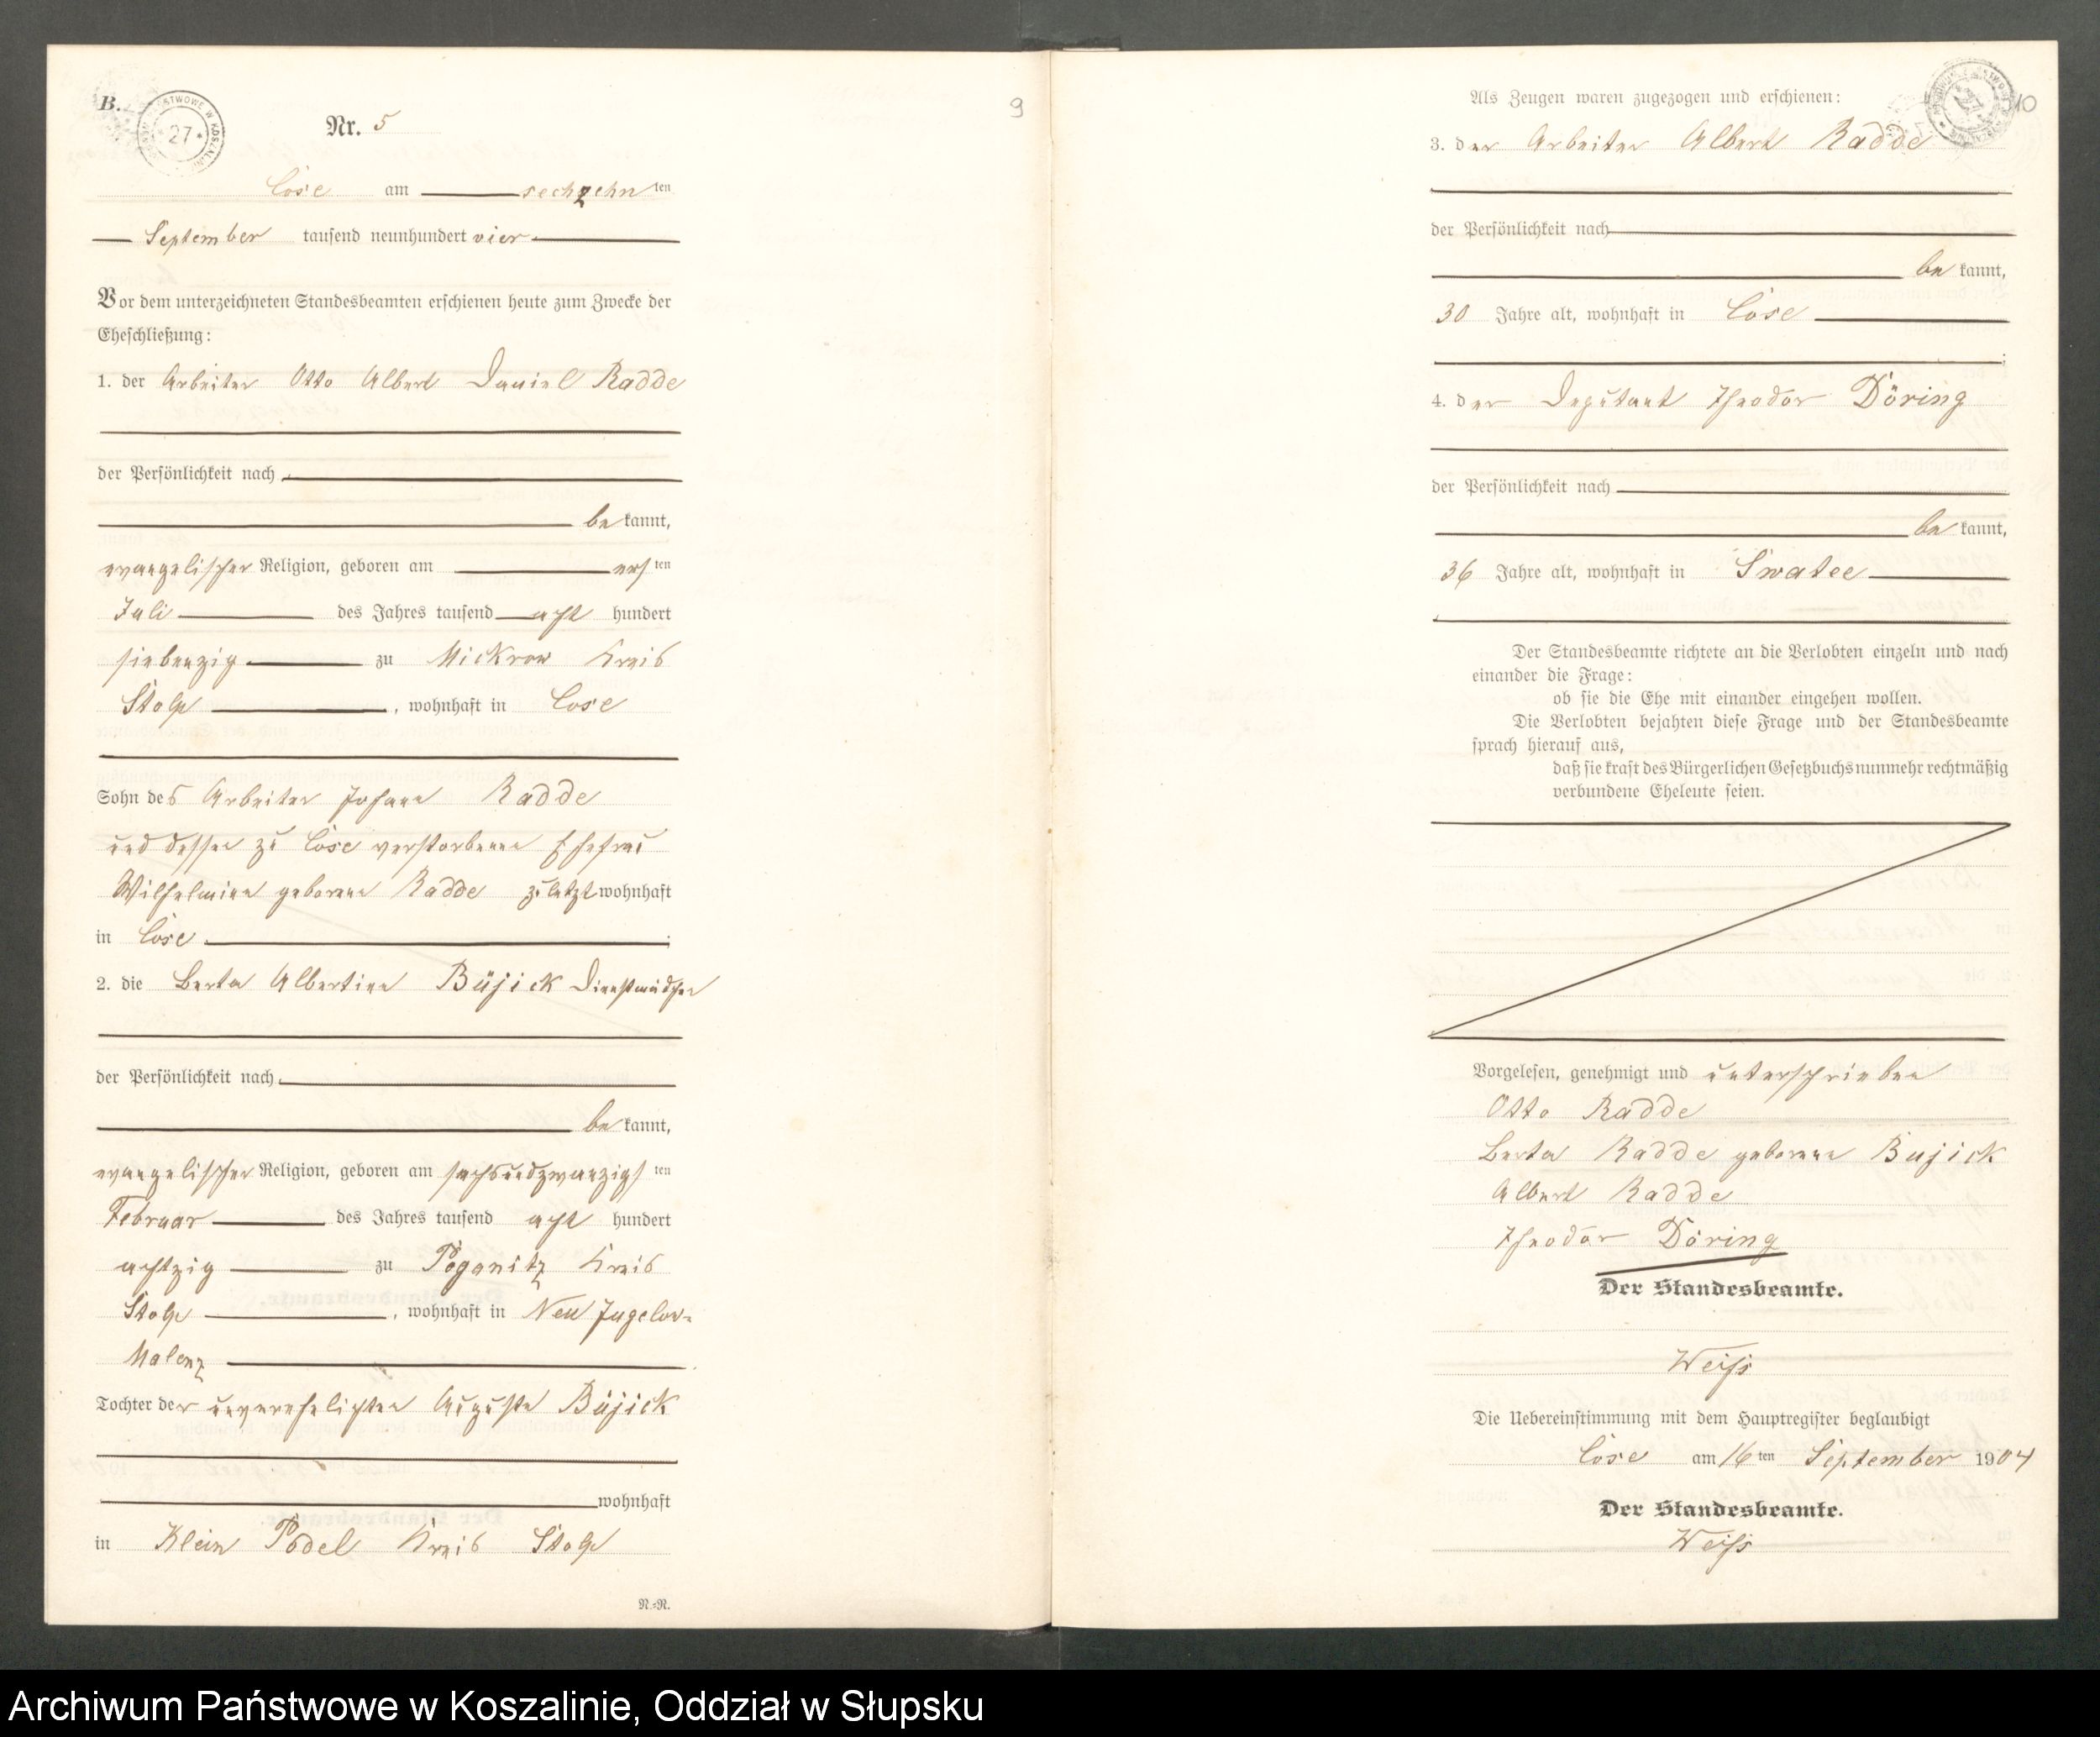 B.
PAŃSTWOWE W KOSZALINIE
27
Nr. 5
9
Cose am sechzehn ten
September tausend neunhundert vier
Vor dem unterzeichneten Standesbeamten erschienen heute zum Zwecke der
Eheschließung:
1. der Arbeiter Otto Albert Daniel Radde
der Persönlichkeit nach
be kannt,
evangelischer Religion, geboren am ers ten
Juli des Jahres tausend acht hundert
siebenzig zu Mickrow Kreis
Stolp, wohnhaft in Cose
Sohn des Arbeiter Johann Radde
und dessen zu Cose verstorbenen Ehefrau
Wilhelmine geborene Radde zuletzt wohnhaft
in Cose;
2. die Berta Albertine Büjick Dienstmädchen
der Persönlichkeit nach
be kannt,
evangelischer Religion, geboren am sechsundzwanzigs ten
Februar des Jahres tausend acht hundert
achtzig zu Poganitz Kreis
Stolp, wohnhaft in Neu Jugelow-
Malenz
Tochter der unverehelichten Auguste Büjick
wohnhaft
in Klein Podel Kreis Stolp
N.-R.
10
Als Zeugen waren zugezogen und erschienen:
3. der Arbeiter Albert Radde
der Persönlichkeit nach
be kannt,
30 Jahre alt, wohnhaft in Cose
;
4. der Deputant Theodor Döring
der Persönlichkeit nach
be kannt,
36 Jahre alt, wohnhaft in Swatee
Der Standesbeamte richtete an die Verlobten einzeln und nach
einander die Frage:
ob sie die Ehe mit einander eingehen wollen.
Die Verlobten bejahten diese Frage und der Standesbeamte
sprach hierauf aus,
daß sie kraft des Bürgerlichen Gesetzbuchs nunmehr rechtmäßig
verbundene Eheleute seien.
Vorgelesen, genehmigt und unterschrieben
Otto Radde
Berta Radde geborene Bujick
Albert Radde
Theodor Döring
Der Standesbeamte.
Weiß
Die Uebereinstimmung mit dem Hauptregister beglaubigt
Cose am 16 ten September 1904
Der Standesbeamte.
Weiß
Archiwum Państwowe w Koszalinie, Oddział w Słupsku